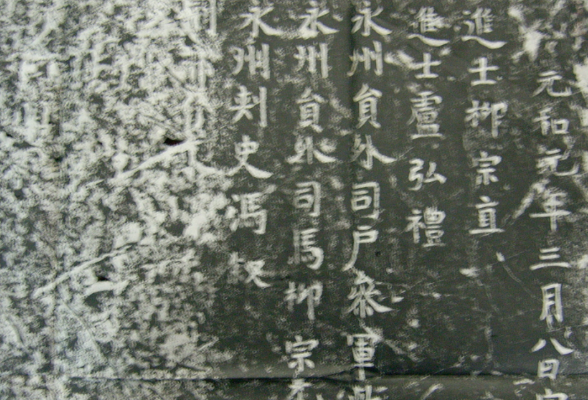 永州刺史馮叙
永州員外司馬柳宗元
永州員外司戶參軍
進士盧弘禮
進士柳宗直
元和元年三月八日